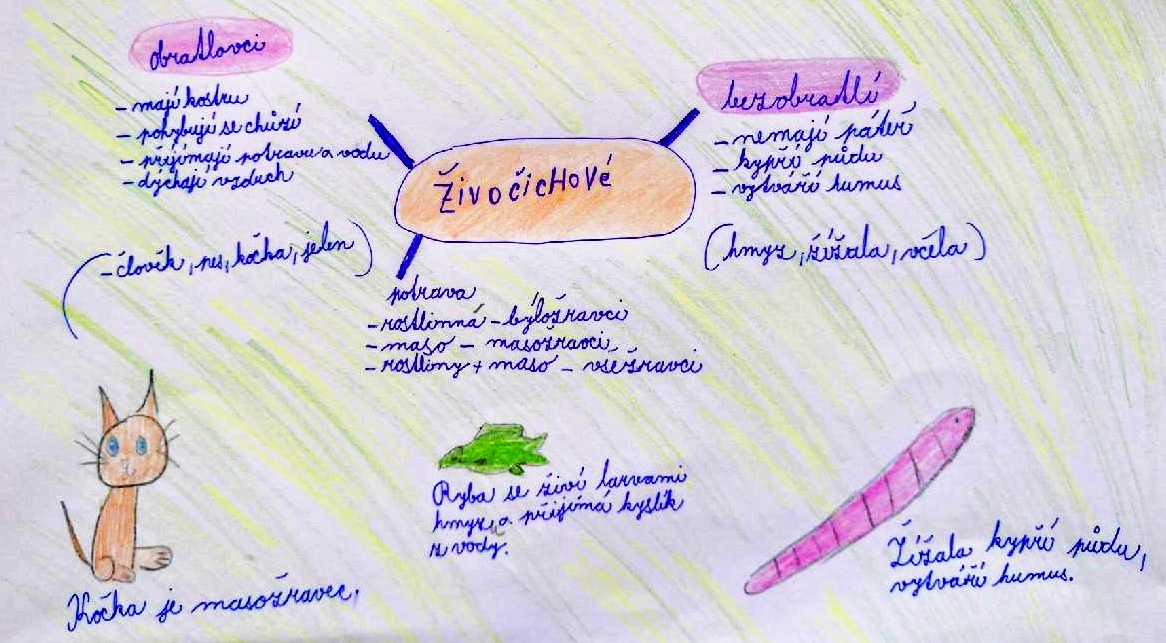 obratlovci
- mají kostru
- pohybují se chůzí
- přijímají potravu a vodu
- dýchají vzduch
(- člověk, pes, kočka, jelen)
ŽivočicHové
bezobratlí
- nemají páteř
- kypří půdu
- vytváří humus
(hmyz, žížala, včela)
potrava
- rostlinná - býložravci
- maso - masožravci
- rostliny + maso - všežravci
Kočka je masožravec.
Ryba se živí larvami
hmyzu a přijímá kyslík
z vody.
Žížala kypří půdu,
vytváří humus.